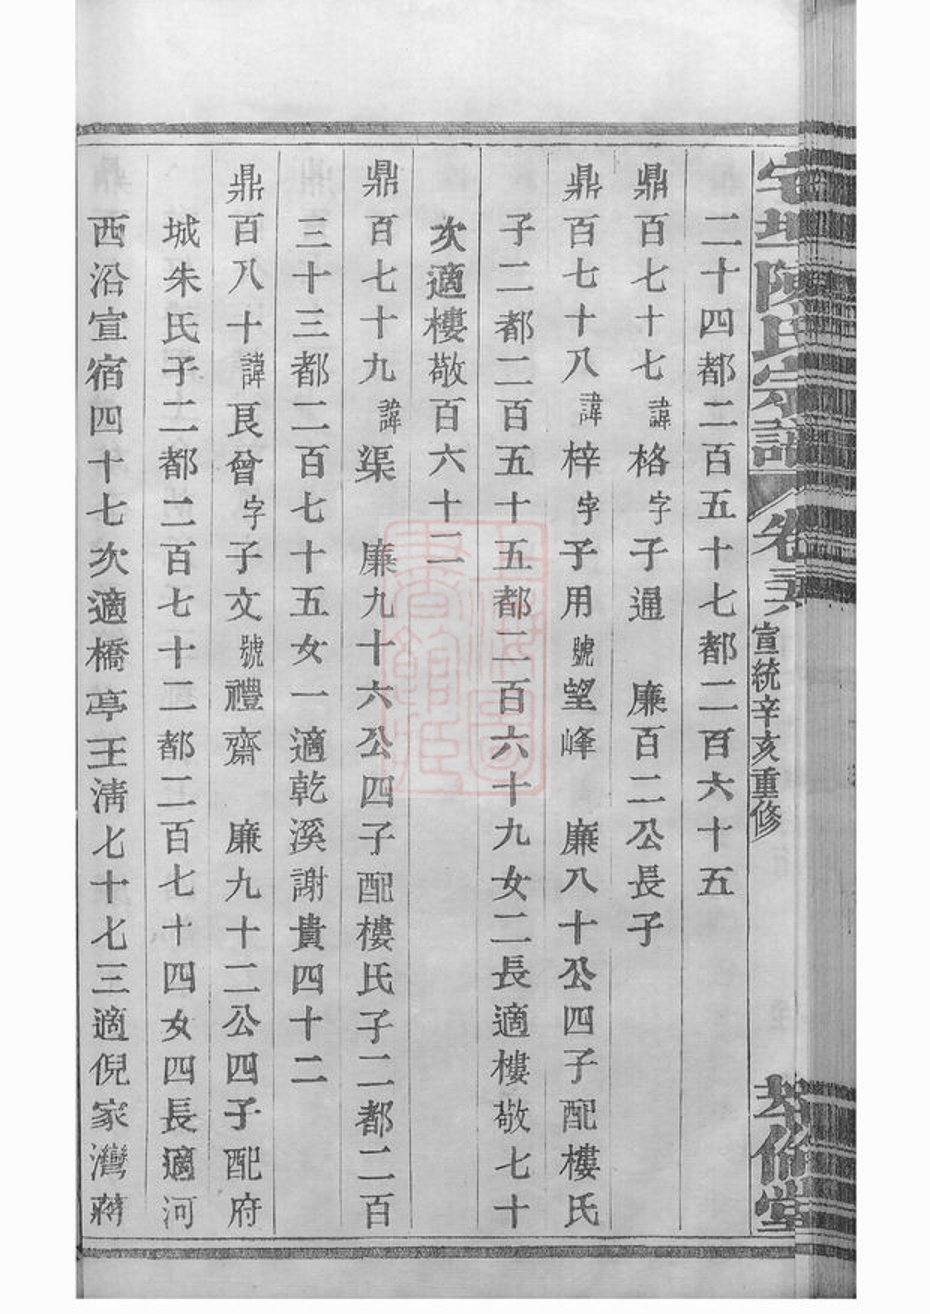 宅坦陳氏宗譜 卷 宣統辛亥重修 堂
二十四都二百五十七都二百六十五
鼎百七十七諱格字子通 廉百二公長子
鼎百七十八諱梓字子用號望峰 廉八十公四子配樓氏
子二都二百五十五都二百六十九女二長適樓敬七十
次適樓敬百六十二
鼎百七十九諱渠 廉九十六公四子配樓氏子二都二百
三十三都二百七十五女一適乾溪謝貴四十二
鼎百八十諱艮曾字子文號禮齋 廉九十二公四子配府
城朱氏子二都二百七十二都二百七十四女四長適河
西沿宣宿四十七次適橋亭王淸七十七三適倪家灣蔣